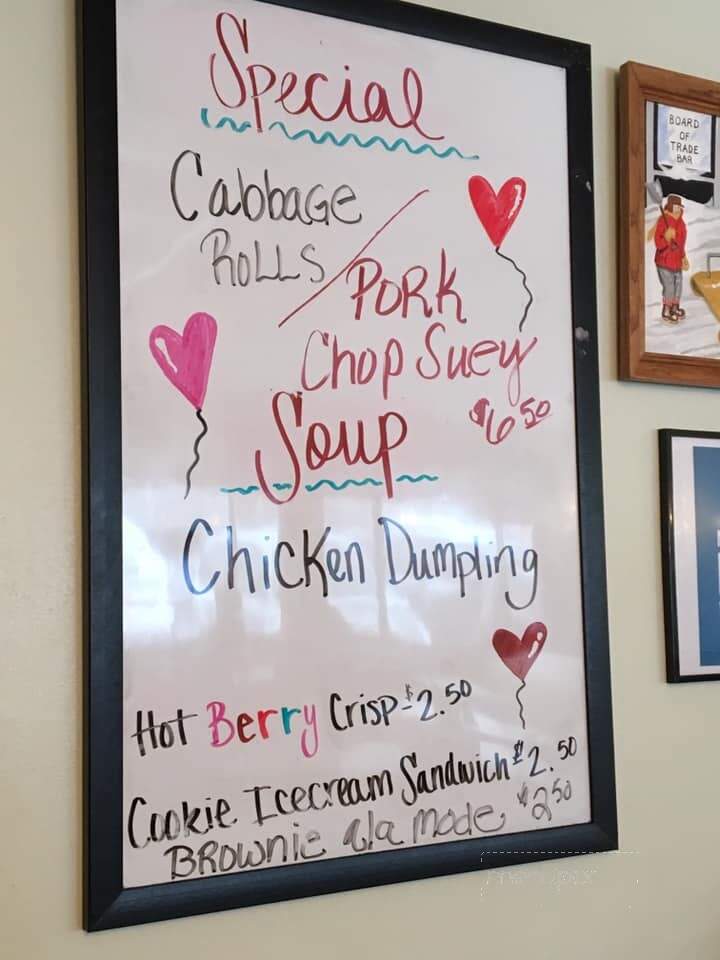 Special
Cabbage
Rolls / Pork
Chop Suey
$6.50
Soup
Chicken Dumpling
Hot Berry Crisp - $2.50
Cookie Icecream Sandwich $2.50
Brownie ala mode $2.50
BOARD
OF
TRADE
BAR